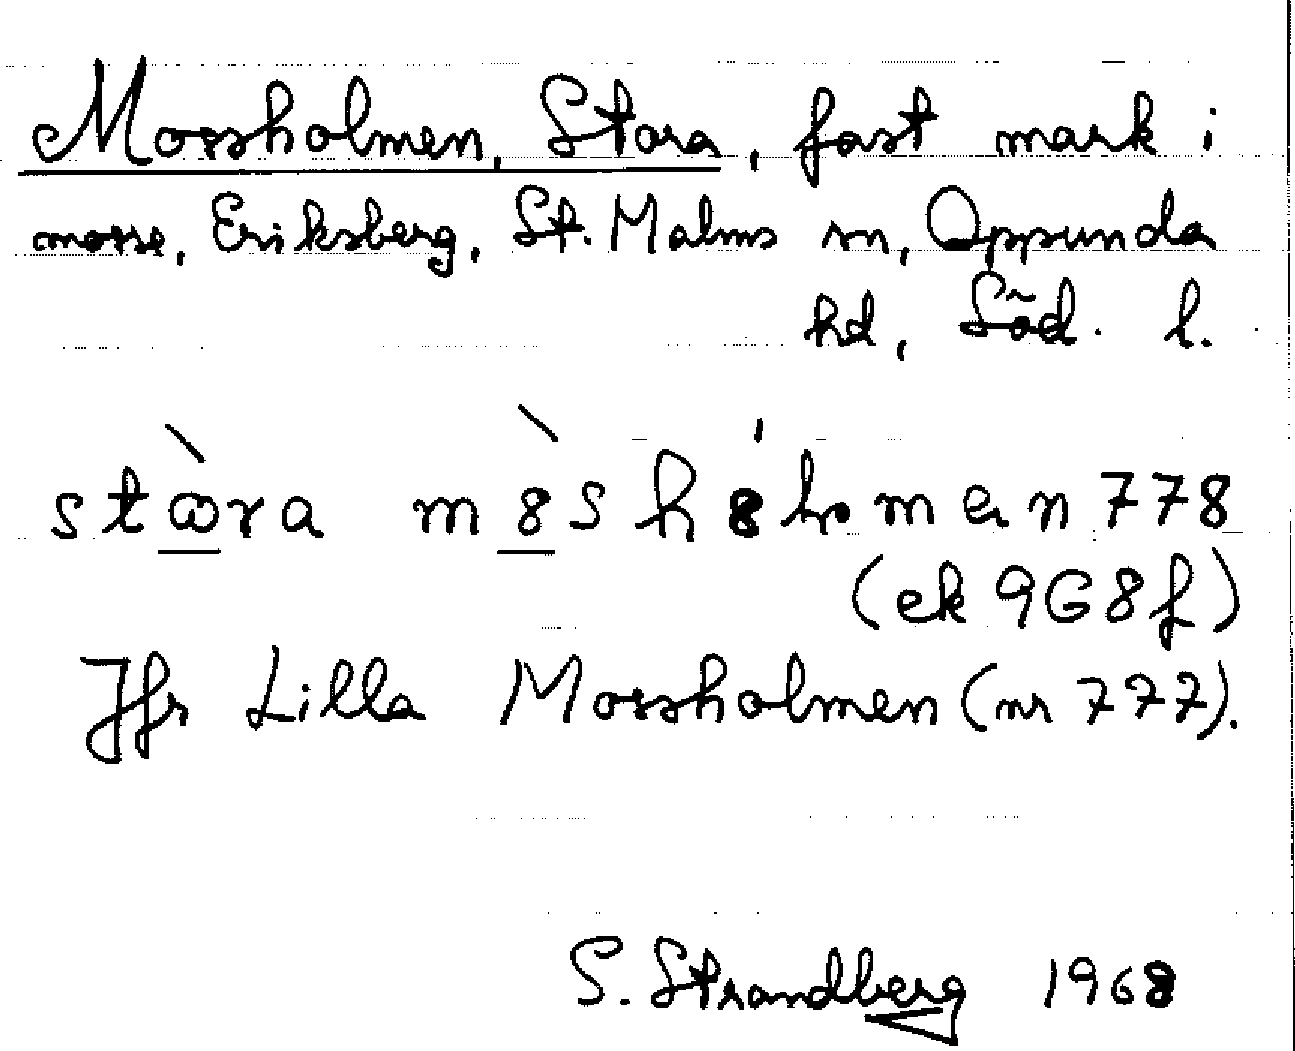 Mossholmen, Stora, fast mark i
mosse, Eriksberg, St. Malms sn, Oppunda
hd, Söd. l.
stὼra m8̀sh8́lmen 778
(ek 9G8f)
Jfr Lilla Mossholmen (nr 777).
S. Strandberg 1968